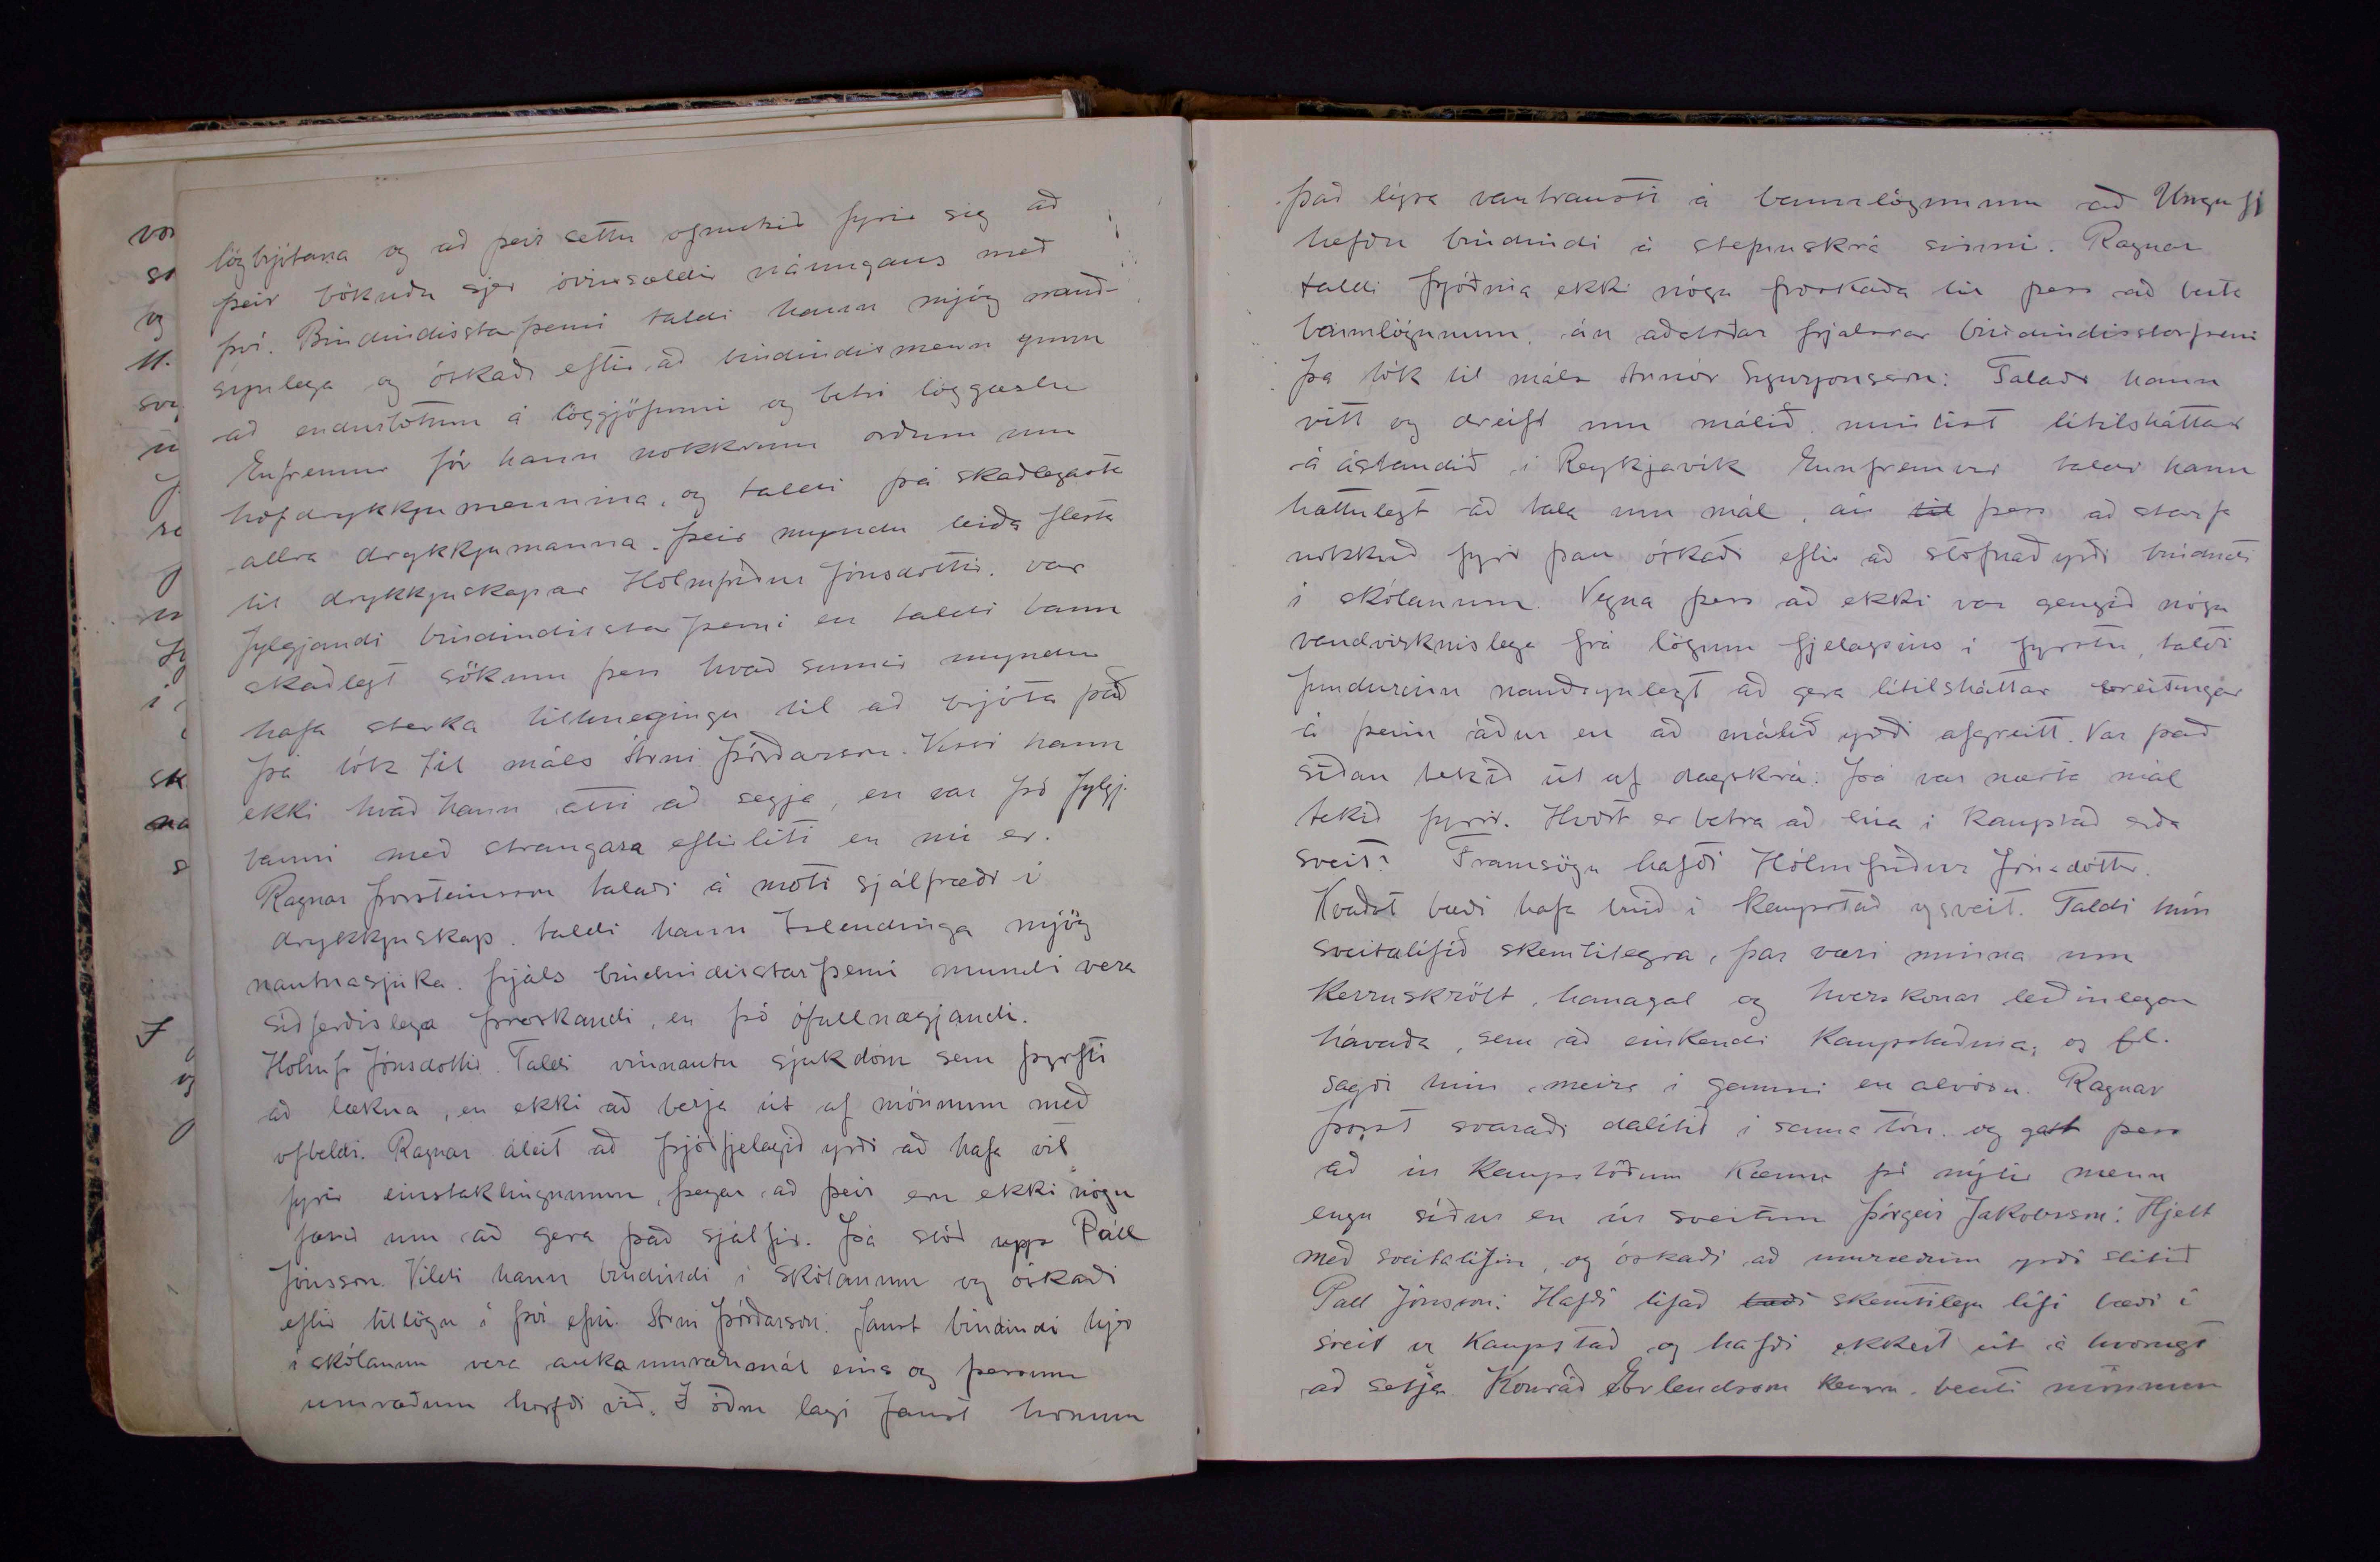 lögbrjótana og að þeir settu ofmikið fyrir sig að
þeir bökuðu sjer óvinsældir náungans með
því. Bindindisstarfsemi taldi hann mjög nauð-
synlega og óskaði eftir að bindindismenn ynnu
að endurbótum á löggjöfinni og betri löggæslu
Enfremur fór hann nokkrum orðum um
hófdrykkjumennina, og taldi þá skaðlegasta
allra drykkjumanna. Þeir myndu leiða flesta
til drykkjuskapar Hólmfríður Jónsdottir. var
fylgjandi bindindisstarfsemi en taldi bann
skaðlegt sökum þess hvað sumir myndu
hafa sterka tilhnegingu til að brjóta það
Þá tók til máls Árni Þórðarson. Vissi hann
ekki hvað hann ætti að segja, en var þó fylgj.
banni með strangara eftirliti en nú er.
Ragnar Þorsteinsson talaði á móti sjálfræði í
drykkjuskap. taldi hann Íslendinga mjög
nautnasjúka. frjáls bindindisstarfsemi mundi vera
siðferðislega þroskandi, en þó ófullnægjandi.
Hólmfr Jónsdottir. Taldi vínnautn sjúkdóm sem þyrfti
að lækna, en ekki að berja út af mönnum með
ofbeldi. Ragnar áleit að þjóðfjelagið yrði að hafa vit
fyrir einstaklingunum, þegar að þeir eru ekki nógu
færir um að gera það sjálfir. Þá stóð upp Páll
Jónsson. Vildi hann bindindi í skólanum og óskaði
eftir tillögu í því efni. Árni Þórðarson. Fanst bindindi hjer
í skólanum vera aukaumræðumál eins og þessum
umræðum horfði við. Í öðru lagi fanst honum
það lýsa vantrausti á bannlögunum að Ungu fj
hefðu bindindi á stefnuskrá sinni. Ragnar
taldi þjóðina ekki nógu þroskaða til þess að beita
bannlögunum, án aðstoðar frjálsrar bindindisstarfsemi
Þá tók til máls Arnór Sigurjónsson: Talaði hann
vítt og dreift um málið. mintist lítilsháttar
á ástandið í Reykjavík Ennfremur taldi hann
hættulegt að tala um mál, án til þess að starfa
nokkuð fyrir þau óskaði eftir að stofnað yrði bindindi
í skólanum. Vegna þess að ekki var gengið nógu
vandvirknislega frá lögum fjelagsins í fyrstu, taldi
fundurinn nauðsynlegt að gera lítilsháttar breitingar
á þeim áður en að málið yrði afgreitt. Var það
síðan tekið út af dagskrá. Þá var næsta mál
tekið fyrir. Hvort er betra að búa í kaupstað eða
sveit? Framsögu hafði Hólmfríður Jónsdóttir.
Kvaðst bæði hafa búið í kaupstað og sveit. Taldi hún
sveitalífið skemtilegra, þar væri minna um
kerruskrölt, hanagal og hverskonar leðinlegan
hávaða, sem að einkendi kaupstaðina, og fl.
sagði hún meira í gamni en alvöru. Ragnar
Þorst svaraði dálítið í sama tón. og gat þess
að úr kaupstöðum kæmu þó nýtir menn
engu síður en úr sveitum Þórgeir Jakobsson: Hjelt
með sveitalífinu, og óskaði að umræðum yrði slitið
Páll Jónsson: Hafði lifað bæði skemtilegu lífi bæði í
sveit og kaupstað og hafði ekkert út á hvorugt
að setja. Konráð Erlendsson kenn. benti mönnum